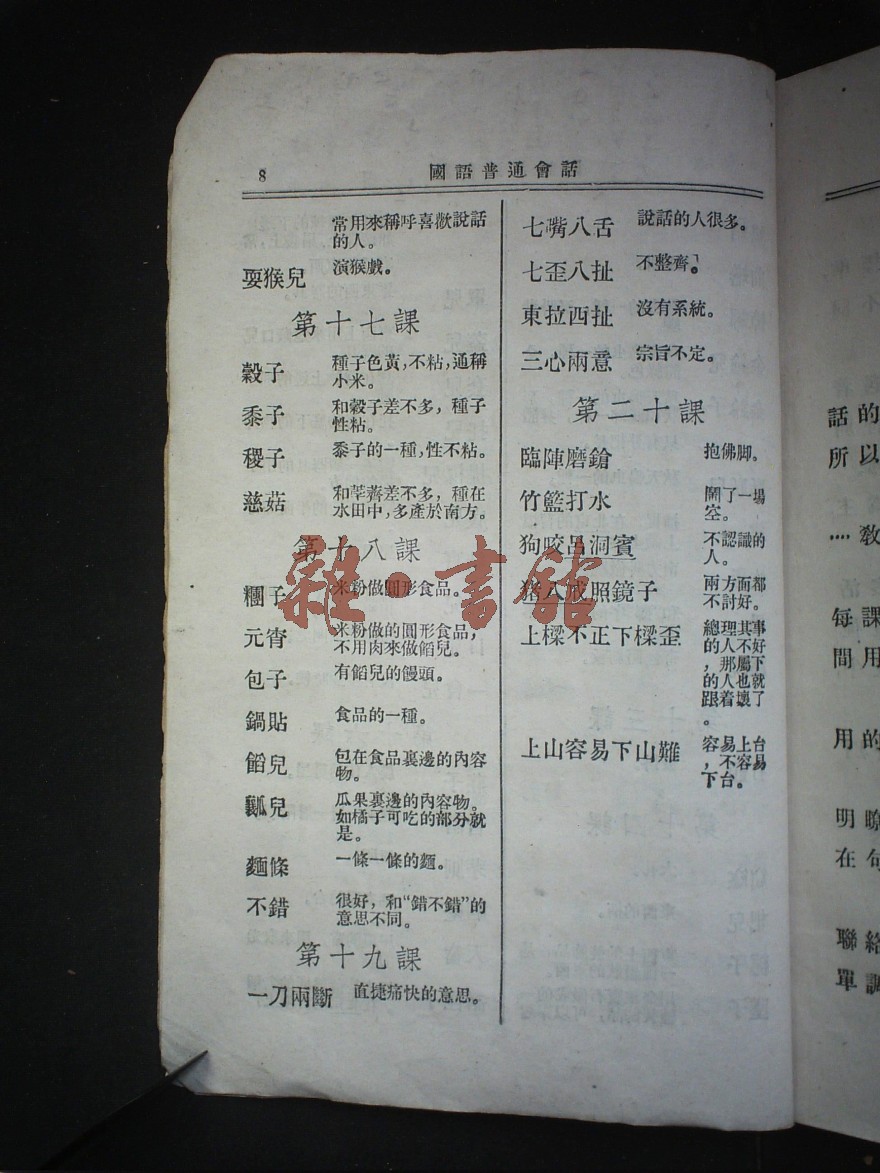 8
國語普通會話
常用來稱呼喜歡說話
的人。
耍猴兒 演猴戲。
第十七課
穀子 種子色黃，不粘，通稱
小米。
黍子 和穀子差不多，種子
性粘。
稷子 黍子的一種，性不粘。
慈菇 和荸薺差不多，種在
水田中，多產於南方。
第十八課
糰子 米粉做圓形食品。
元宵 米粉做的圓形食品，
不用肉來做餡兒。
包子 有餡兒的饅頭。
鍋貼 食品的一種。
餡兒 包在食品裏邊的內容
物。
瓤兒 瓜果裏邊的內容物。
如橘子可吃的部分就
是。
麵條 一條一條的麵。
不錯 很好，和“錯不錯”的
意思不同。
第十九課
一刀兩斷 直捷痛快的意思。
七嘴八舌 說話的人很多。
七歪八扯 不整齊。
東拉西扯 沒有系統。
三心兩意 宗旨不定。
第二十課
臨陣磨鎗 抱佛脚。
竹籃打水 鬧了一場
空。
狗咬呂洞賓 不認識的
人。
豬八戒照鏡子 兩方面都
不討好。
上樑不正下樑歪 總理其事
的人不好
，那屬下
的人也就
跟着壞了
。
上山容易下山難 容易上台
，不容易
下台。
雜·書館
話的
所以
····教
每課
間用
用的
明瞭
在句
聯絡
單調